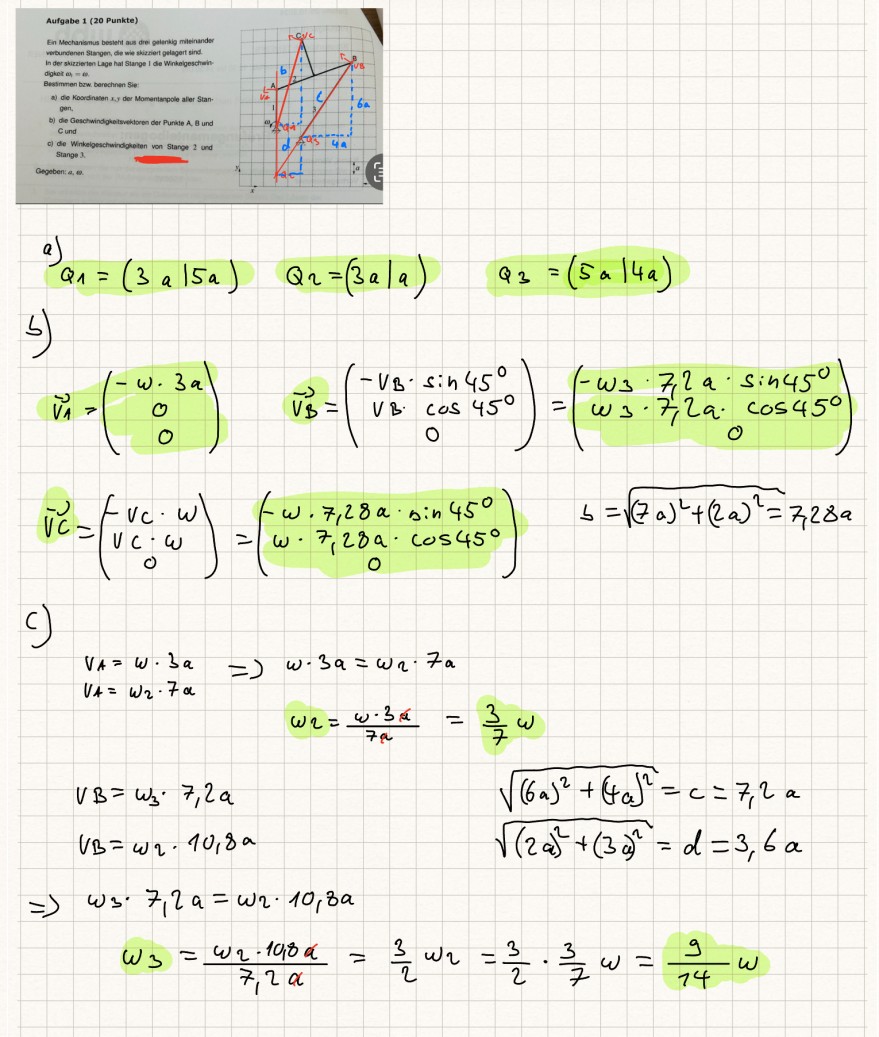 Aufgabe 1 (20 Punkte)
Ein Mechanismus besteht aus drei gelenkig miteinander
verbundenen Stangen, die wie skizziert gelagert sind.
In der skizzierten Lage hat Stange 1 die Winkelgeschwin-
digkeit ω₁ = ω.
Bestimmen bzw. berechnen Sie:
a) die Koordinaten x,y der Momentanpole aller Stan-
gen,
b) die Geschwindigkeitsvektoren der Punkte A, B und
C und
c) die Winkelgeschwindigkeiten von Stange 2 und
Stange 3.
Gegeben: a, ω.
C VC
B
VB
b
A
VA
2
1
c
3
6a
Q1
d
Q3
4a
a
x
a)
Q1 = (3a|5a) Q2 = (3a|a) Q3 = (5a|4a)
b)
→VA = (-ω · 3a; 0; 0) →VB = (-VB · sin 45°; VB · cos 45°; 0) = (-ω3 · 7,2a · sin 45°; ω3 · 7,2a · cos 45°; 0)
→VC = (-VC · ω; VC · ω; 0) = (-ω · 7,28a · sin 45°; ω · 7,28a · cos 45°; 0) b = √(7a)² + (2a)² = 7,28a
c)
VA = ω · 3a => ω · 3a = ω2 · 7a
VA = ω2 · 7a
ω2 = ω · 3a / 7a = 3/7 ω
VB = ω3 · 7,2a √(6a)² + (4a)² = c = 7,2a
VB = ω2 · 10,8a √(2a)² + (3a)² = d = 3,6a
=> ω3 · 7,2a = ω2 · 10,8a
ω3 = ω2 · 10,8a / 7,2a = 3/2 ω2 = 3/2 · 3/7 ω = 9/14 ω